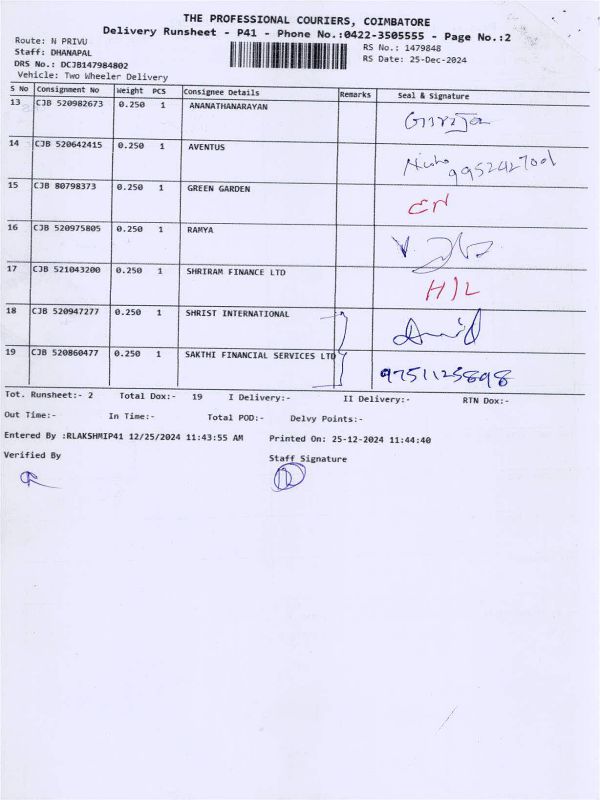 THE PROFESSIONAL COURIERS, COIMBATORE
Delivery Runsheet - P41 - Phone No.:0422-3505555 - Page No.:2
Route: N PRIVU
RS No.: 1479848
Staff: DHANAPAL
RS Date: 25-Dec-2024
DRS No.: DCJB147984802
Vehicle: Two Wheeler Delivery
S No Consignment No Weight PCS Consignee Details Remarks Seal & Signature
13 CJB 520982673 0.250 1 ANANATHANARAYAN Girija
14 CJB 520642415 0.250 1 AVENTUS 9952427001
15 CJB 80798373 0.250 1 GREEN GARDEN
16 CJB 520975805 0.250 1 RAMYA
17 CJB 521043200 0.250 1 SHRIRAM FINANCE LTD
18 CJB 520947277 0.250 1 SHRIST INTERNATIONAL
19 CJB 520860477 0.250 1 SAKTHI FINANCIAL SERVICES LTD 9751125898
Tot. Runsheet:- 2 Total Dox:- 19 I Delivery:- II Delivery:- RTN Dox:-
Out Time:- In Time:- Total POD:- Delvy Points:-
Entered By :RLAKSHMIP41 12/25/2024 11:43:55 AM Printed On: 25-12-2024 11:44:40
Verified By Staff Signature